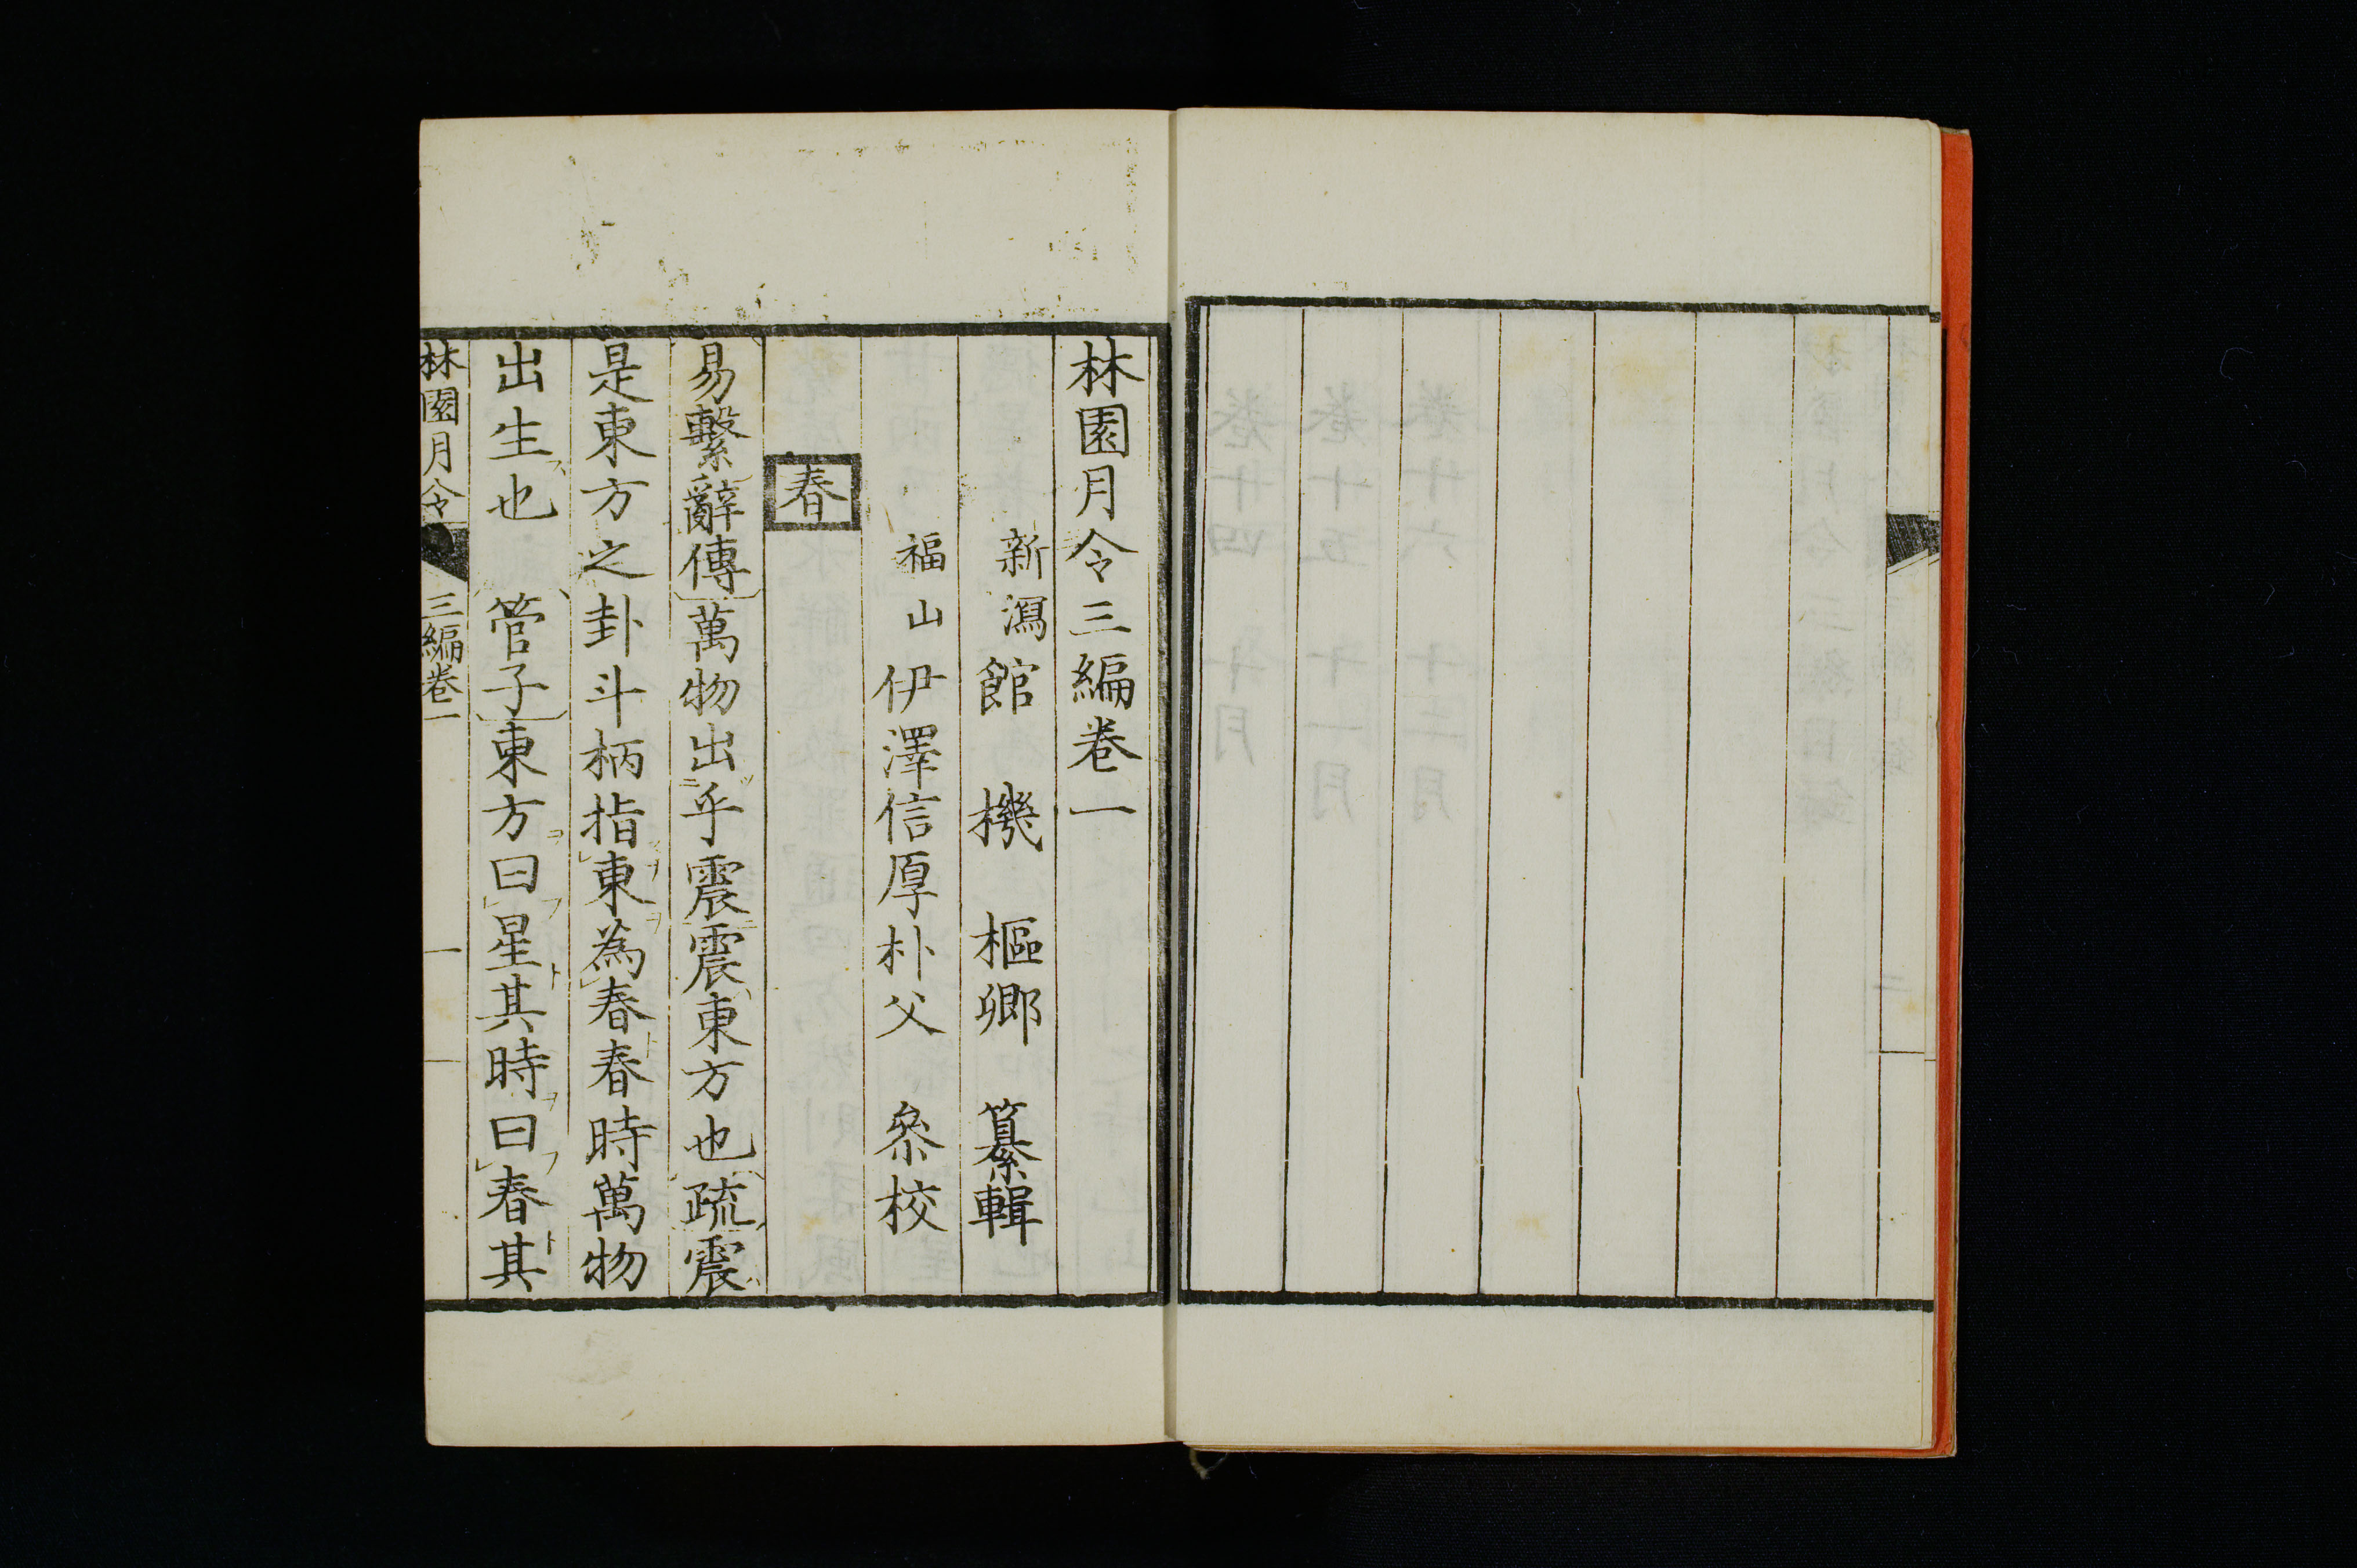 林園月令三編卷一
新瀉館 機 樞卿 纂輯
福山伊澤信厚朴父 叅校
春
易繫辭傳萬物出乎震震東方也疏震
是東方之卦斗柄指東為春春時萬物
出生也 管子東方曰星其時曰春其
林園月令 三編卷一 一